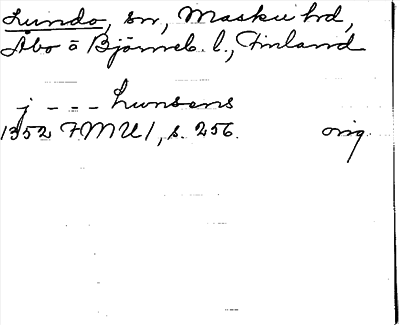 Lundo, sn, Masku hd,
Åbo o Björneb. l., Finland
j - - - Lunsens
1352 FMU 1, s. 256. orig.